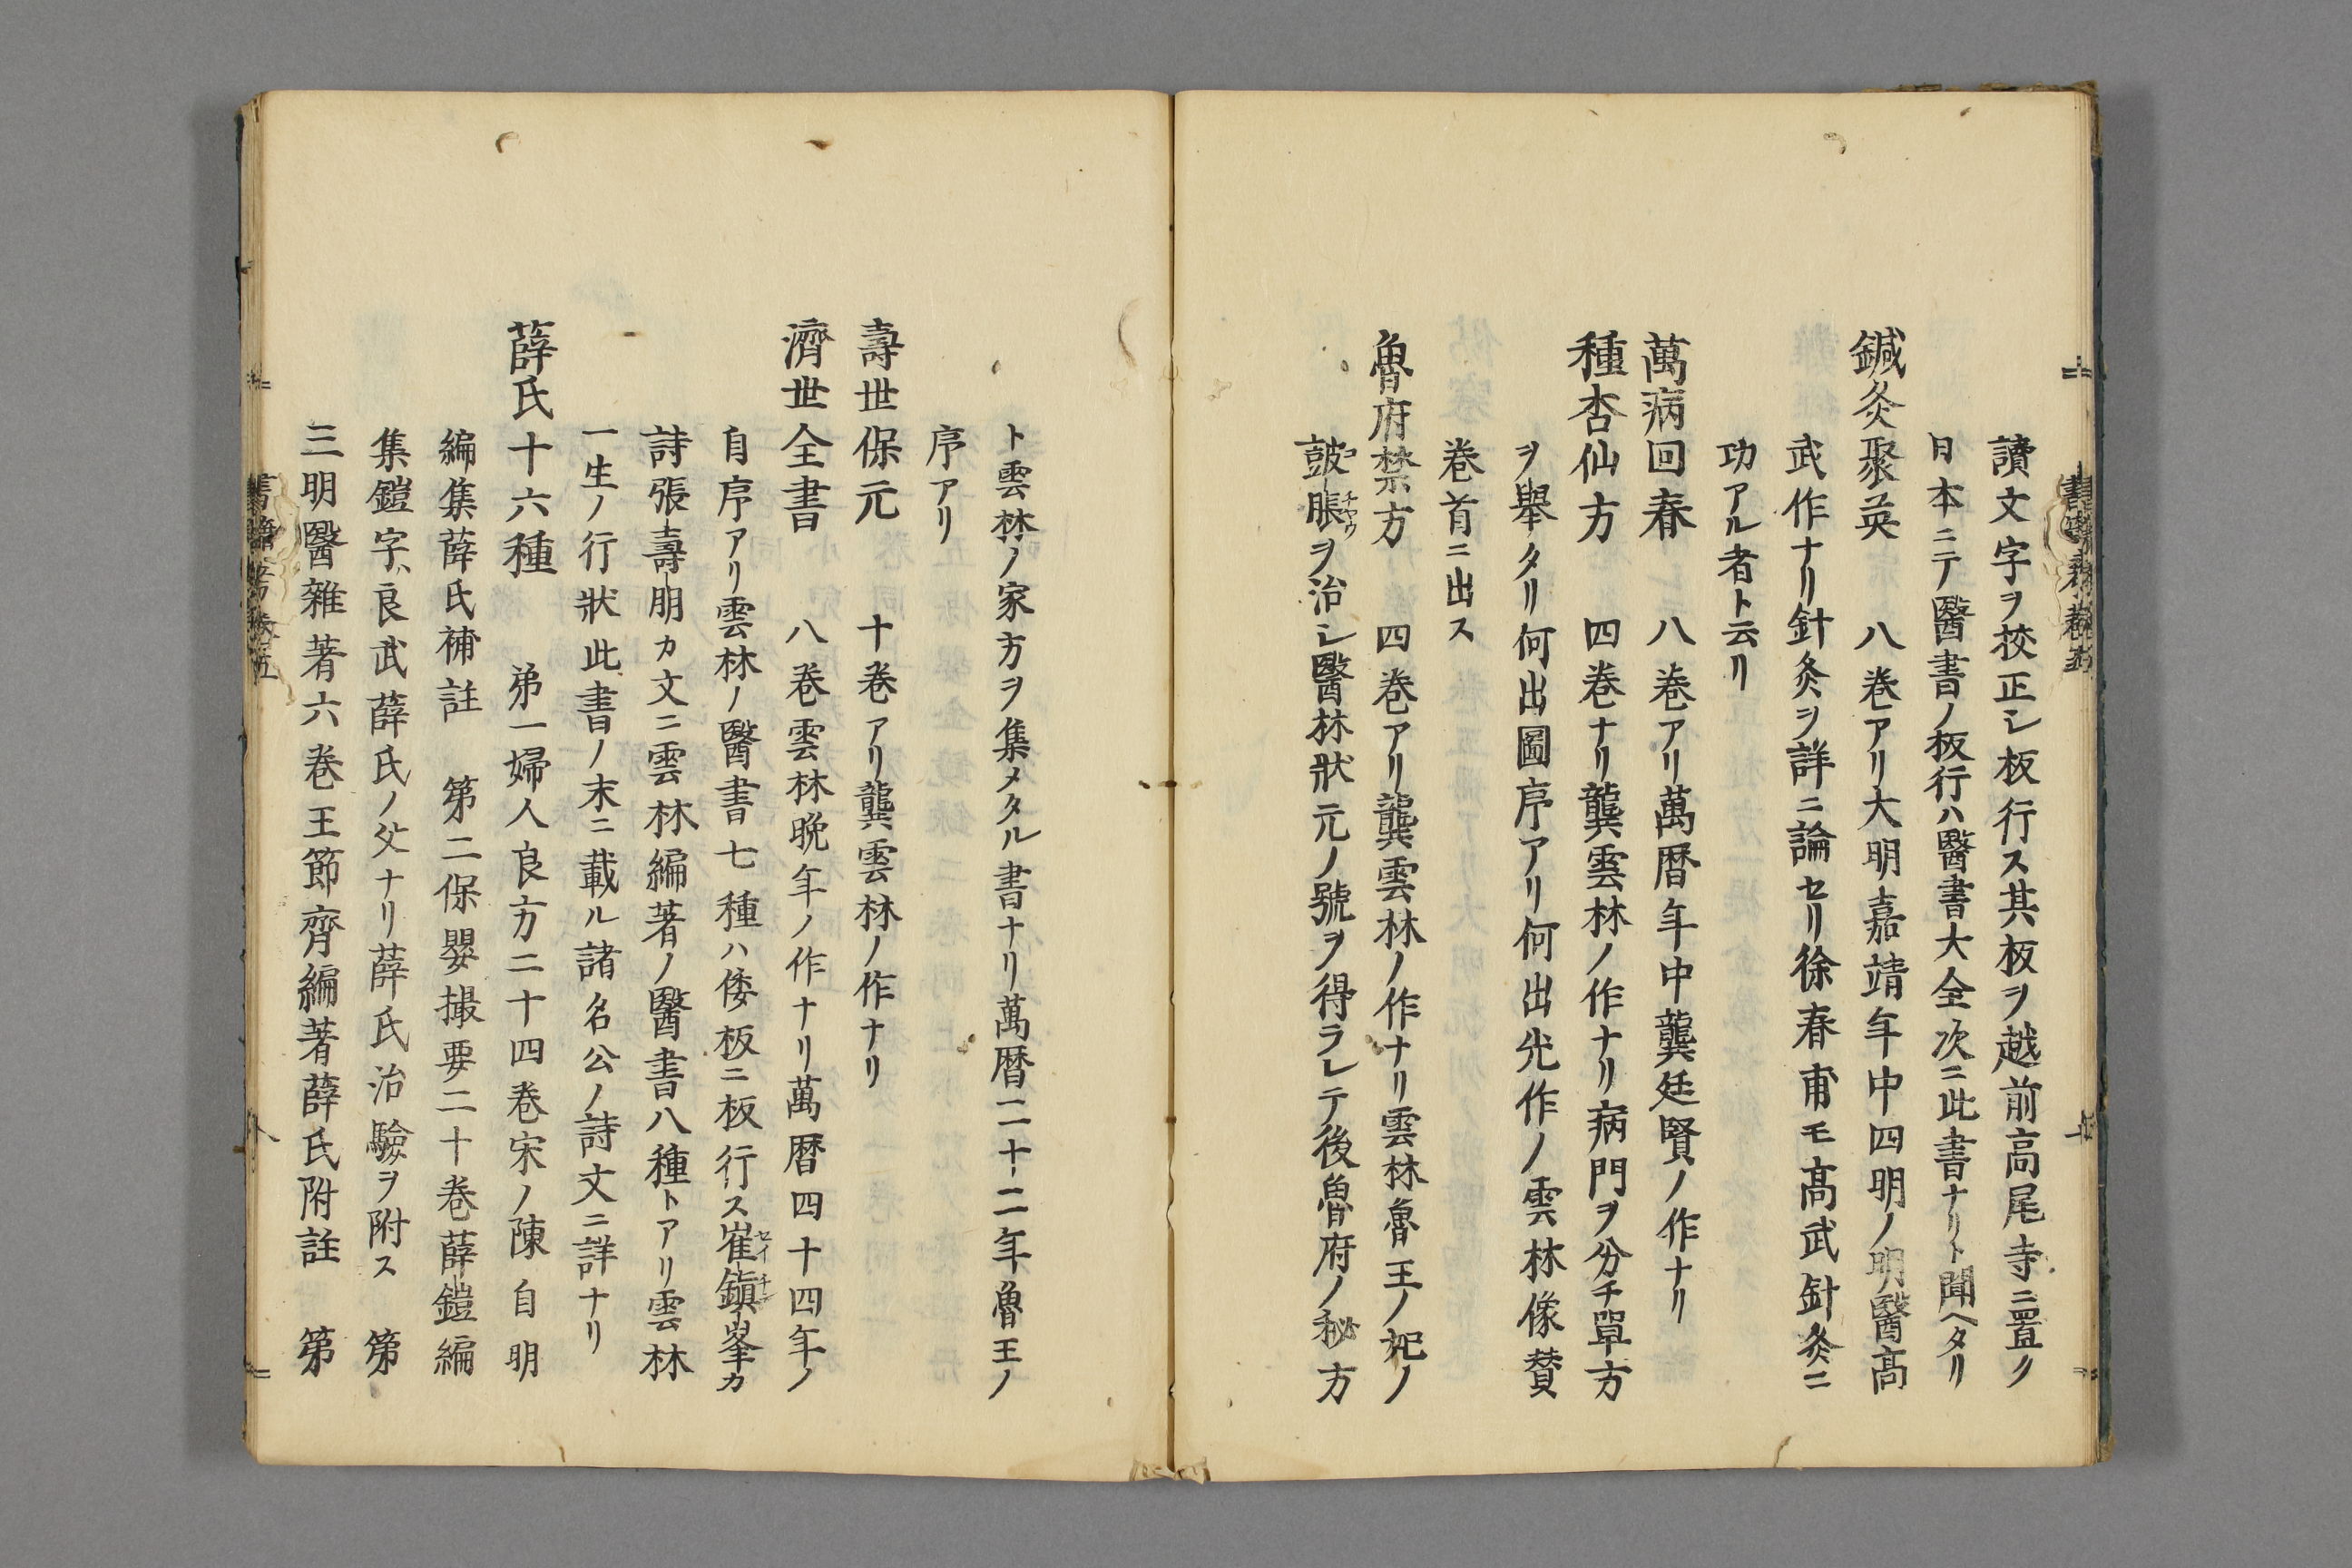 讀文字ヲ校正シ板行ス其板ヲ越前高尾寺ニ置ク
日本ニテ醫書ノ板行ハ醫書大全次ニ此書ナリト聞ヘタリ
鍼灸聚英 八巻アリ大明嘉靖年中四明ノ明醫高
武作ナリ針灸ヲ詳ニ論セリ徐春甫モ高武針灸ニ
功アル者ト云リ
萬病回春 八巻アリ萬暦年中龔廷賢ノ作ナリ
種杏仙方 四巻ナリ龔雲林ノ作ナリ病門ヲ分チ單方
ヲ擧タリ何出圖序アリ何出光作ノ雲林像賛
巻首ニ出ス
魯府禁方 四巻アリ龔雲林ノ作ナリ雲林魯王ノ妃ノ
皷脹ヲ治シ醫林狀元ノ號ヲ得ラレテ後魯府ノ秘方
ト雲林ノ家方ヲ集メタル書ナリ萬暦二十二年魯王ノ
序アリ
壽世保元 十巻アリ龔雲林ノ作ナリ
濟世全書 八巻雲林晩年ノ作ナリ萬暦四十四年ノ
自序アリ雲林ノ醫書七種ハ倭板ニ板行ス崔鎭峯カ
詩張壽朋カ文ニ雲林編著ノ醫書八種トアリ雲林
一生ノ行狀此書ノ末ニ載ル諸名公ノ詩文ニ詳ナリ
薛氏十六種 弟一婦人良方二十四巻宋ノ陳自明
編集薛氏補註 第二保嬰撮要二十巻薛鎧編
集鎧字ハ良武薛氏ノ父ナリ薛氏治驗ヲ附ス 第
三明醫雜著六巻王節齊編著薛氏附註 第